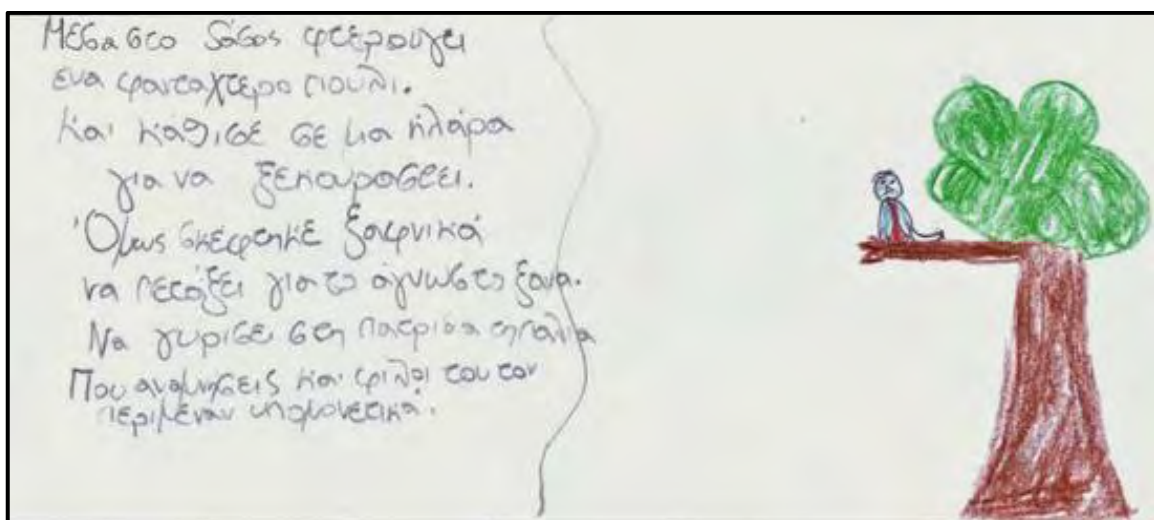 Μέσα στο δάσος φτερουγεί
ενα φανταχτερο πουλι.
Και κάθισε σε μια κλάρα
για να ξεκουραστει.
Όμως σκέφτηκε ξαφνικά
να πετάξει για το άγνωστο ξανα.
Να γυρισε στη πατριδα τη παλια
Που αναμνησεις και φιλοι του τον
περιμεναν υπομονετικά.